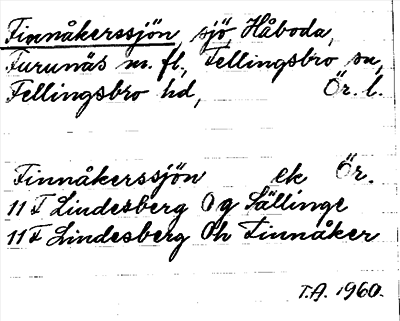 Finnåkerssjön, sjö, Håboda,
Furunäs m. fl., Fellingsbro sn,
Fellingsbro hd, Ör. l.
Finnåkerssjön ek Ör.
11 F Lindesberg Og Sällinge
11 F Lindesberg Oh Finnåker
T.A. 1960.